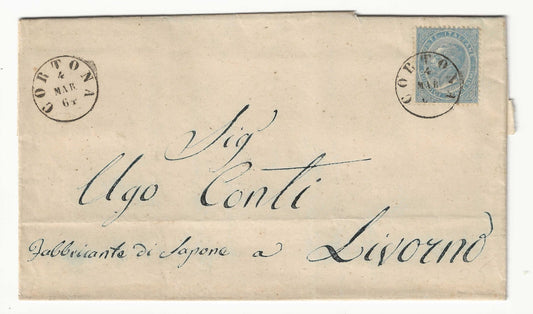 CORTONA
4
MAR
64
CORTONA
4
MAR
Sig
Ugo Conti
Fabbricante di Sapone a Livorno